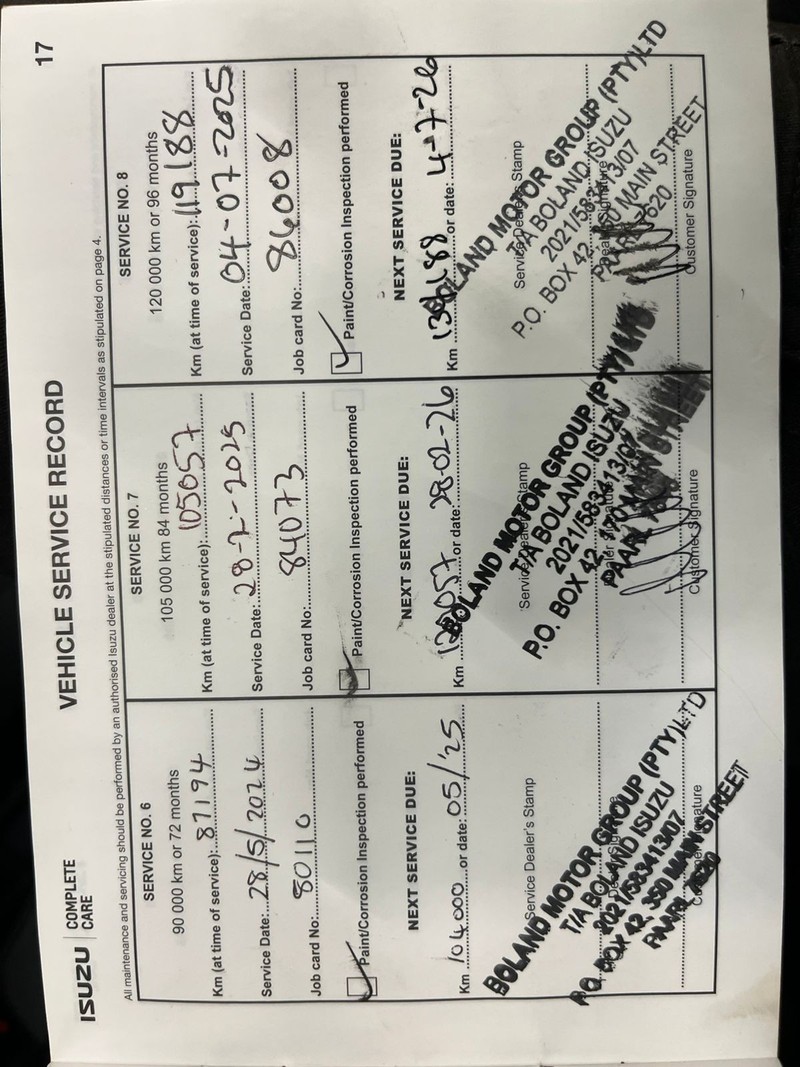 ISUZU
COMPLETE
CARE
VEHICLE SERVICE RECORD
All maintenance and servicing should be performed by an authorised Isuzu dealer at the stipulated distances or time intervals as stipulated on page 4.
SERVICE NO. 6
90 000 km or 72 months
Km (at time of service): 87194
Service Date: 28/5/2024
Job card No: 80110
Paint/Corrosion Inspection performed
NEXT SERVICE DUE:
Km 104000 or date: 05/'25
Service Dealer's Stamp
BOLAND MOTOR GROUP (PTY)LTD
T/A BOLAND ISUZU
2021/583413/07
P.O. BOX 42, 350 MAIN STREET
PAARL 7620
Customer Signature
SERVICE NO. 7
105 000 km 84 months
Km (at time of service): 105057
Service Date: 28-2-2025
Job card No: 84073
Paint/Corrosion Inspection performed
NEXT SERVICE DUE:
Km or date: 28-02-26
Service Dealer's Stamp
BOLAND MOTOR GROUP (PTY)
T/A BOLAND ISUZU
2021/583413/07
P.O. BOX 42, MAIN STREET
PAARL
Customer Signature
SERVICE NO. 8
120 000 km or 96 months
Km (at time of service): 119188
Service Date: 04-07-2025
Job card No: 86008
Paint/Corrosion Inspection performed
NEXT SERVICE DUE:
Km 134188 or date: 4-7-26
Service Dealer's Stamp
BOLAND MOTOR GROUP (PTY)LTD
T/A BOLAND ISUZU
2021/583413/07
P.O. BOX 42, 350 MAIN STREET
PAARL 7620
Customer Signature
17